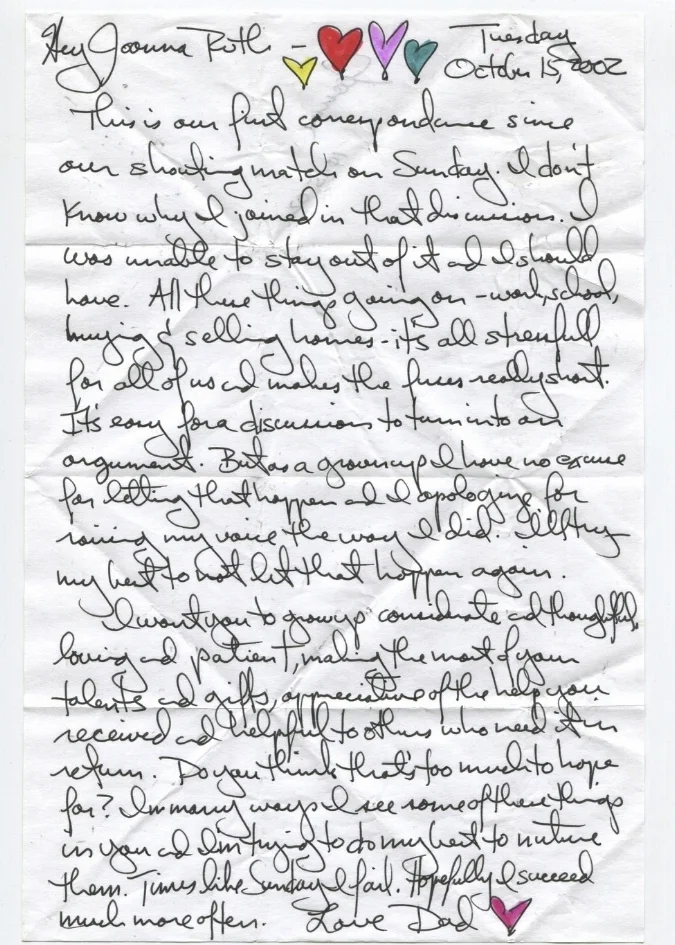 Hey Joanna Ruth - Tuesday
October 15, 2002
This is our first correspondance since
our shouting match on Sunday. I don't
know why I joined in that discussion. I
was unable to stay out of it and I should
have. All these things going on - work, school,
buying & selling homes - it's all stressfull
for all of us and makes the fuses really short.
It's easy for a discussion to turn into an
argument. But as a grownup I have no excuse
for letting that happen and I apologize for
raising my voice the way I did. I'll try
my best to not let that happen again.
I want you to grow up considerate and thoughtful,
loving and patient, making the most of your
talents and gifts, appreciative of the help you
received and helpful to others who need it in
return. Do you think that's too much to hope
for? In many ways I see some of these things
in you and I'm trying to do my best to nurture
them. Times like Sunday I fail. Hopefully I succeed
much more often. Love Dad